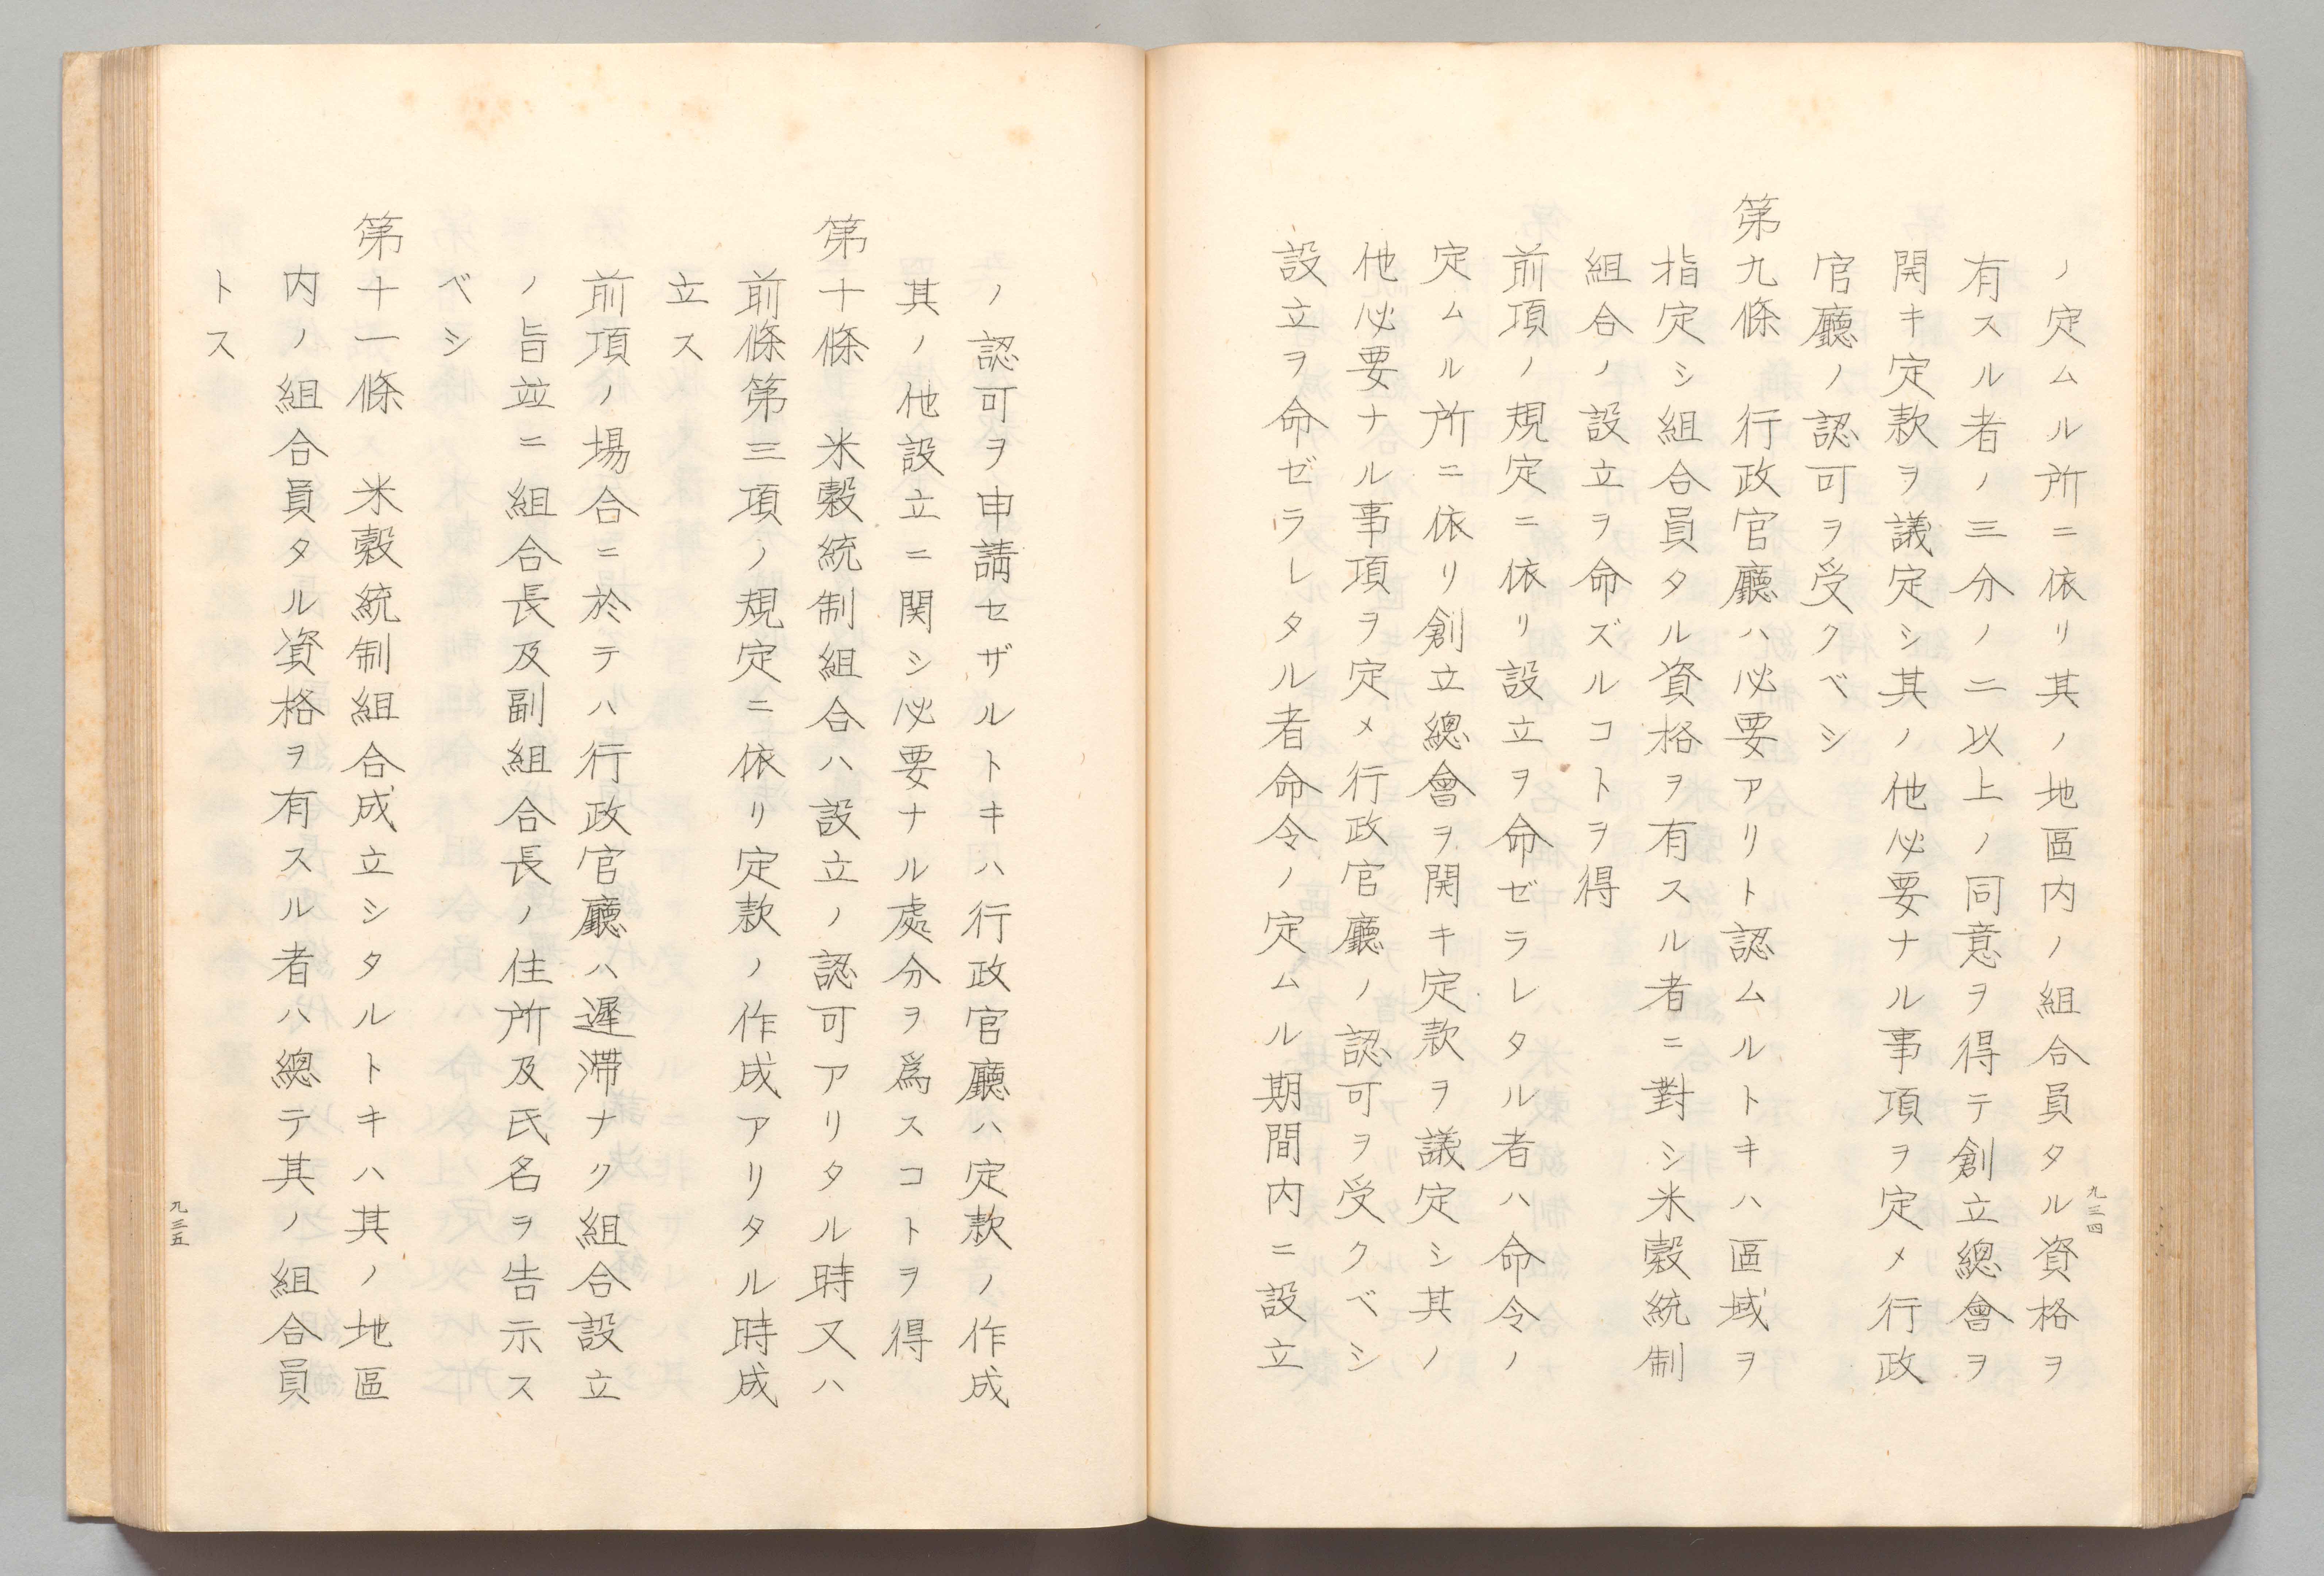 ノ定ムル所ニ依リ其ノ地區内ノ組合員タル資格ヲ
有スル者ノ三分ノ二以上ノ同意ヲ得テ創立總會ヲ
開キ定款ヲ議定シ其ノ他必要ナル事項ヲ定メ行政
官廳ノ認可ヲ受クベシ
第九條　行政官廳ハ必要アリト認ムルトキハ區域ヲ
指定シ組合員タル資格ヲ有スル者ニ對シ米穀統制
組合ノ設立ヲ命ズルコトヲ得
前項ノ規定ニ依リ設立ヲ命ゼラレタル者ハ命令ノ
定ムル所ニ依リ創立總會ヲ開キ定款ヲ議定シ其ノ
他必要ナル事項ヲ定メ行政官廳ノ認可ヲ受クベシ
設立ヲ命ゼラレタル者命令ノ定ムル期間内ニ設立
九三四
ノ認可ヲ申請セザルトキハ行政官廳ハ定款ノ作成
其ノ他設立ニ関シ必要ナル處分ヲ爲スコトヲ得
第十條　米穀統制組合ハ設立ノ認可アリタル時又ハ
前條第三項ノ規定ニ依リ定款ノ作成アリタル時成
立ス
前項ノ場合ニ於テハ行政官廳ハ遲滞ナク組合設立
ノ旨並ニ組合長及副組合長ノ住所及氏名ヲ告示ス
ベシ
第十一條　米穀統制組合成立シタルトキハ其ノ地區
内ノ組合員タル資格ヲ有スル者ハ總テ其ノ組合員
トス
九三五